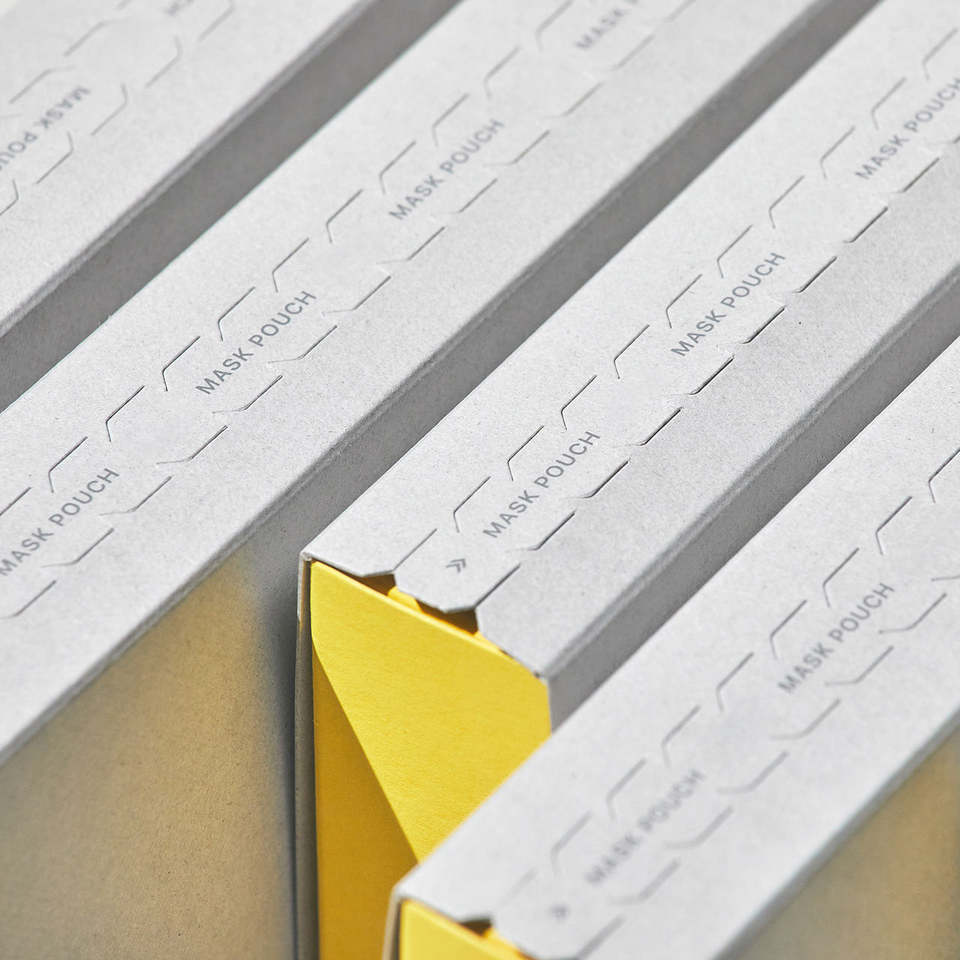 MASK POUCH
MASK POUCH
MASK POUCH
MASK POUCH
MASK
MASK POUCH
MASK POUCH
MASK POUCH
»
MASK POUCH
MASK POUCH
»